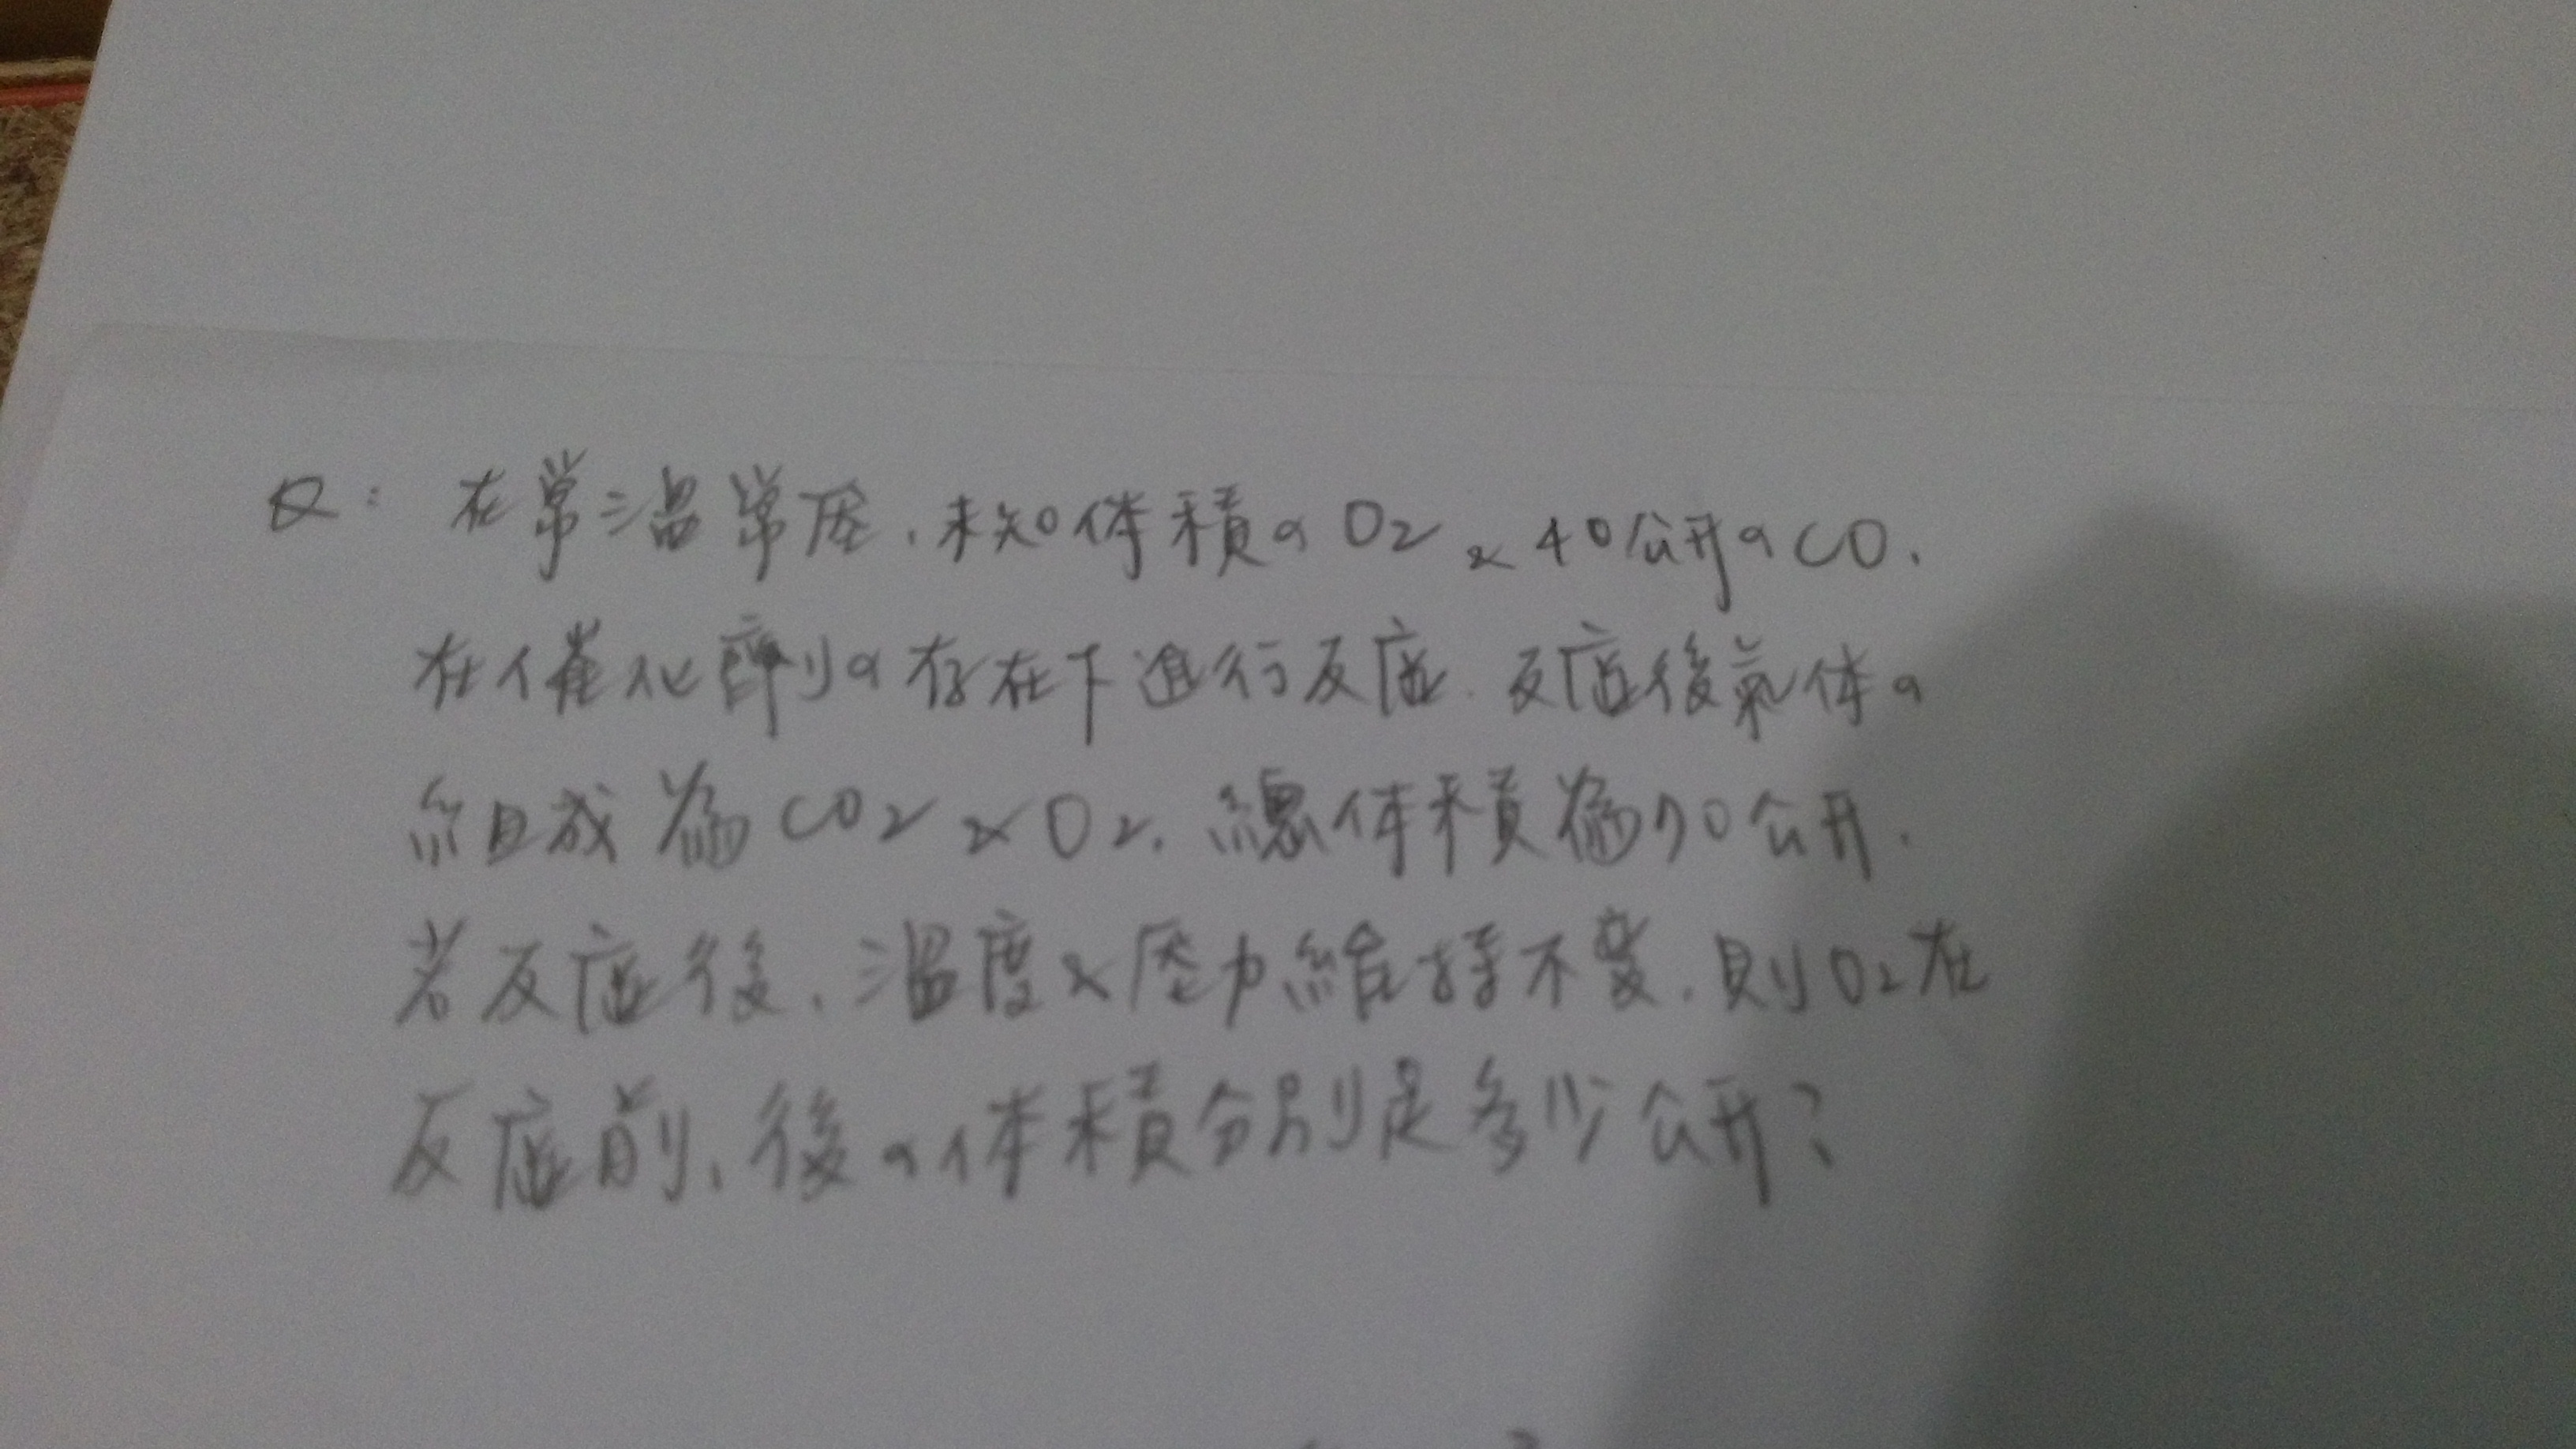 Q: 在常溫常壓、未知体積の O2 & 40公升の CO、
在催化劑の存在下進行反應.反應後氣体の
組成為 CO2 & O2, 總体積為70公升.
若反應後、溫度&壓力維持不變.則O2在
反應前、後の体積分別是多少公升?